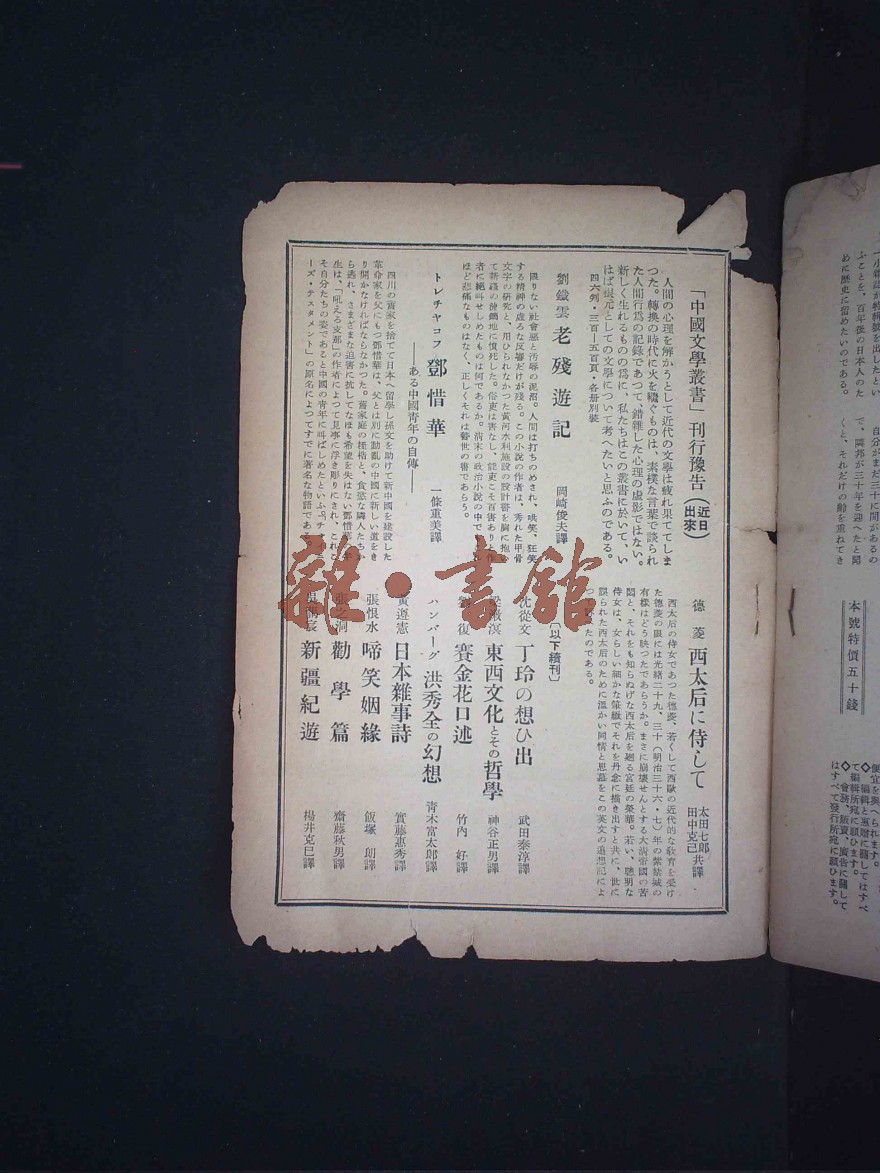 「中國文學叢書」刊行豫告(近日出來)
人間の心理を解かうとして近代の文學は疲れ果ててしま
つた。轉換の時代に火を鑽ぐものは、素樸な言葉で談られ
た人間行爲の記錄であつて、錯雜した心理の虛影ではない。
新しく生れるものの爲に、私たちはこの叢書に於いて、い
はば還元としての文學について考へたいと思ふのである。
四六判・三百—五百頁・各册別裝
劉鐵雲 老殘遊記 岡崎俊夫譯
限りない社會惡と汚辱の泥沼。人間は打ちのめされ、哄笑、狂笑
する精神の虛ろな反響だけが殘る。この小說の作者は、秀れた甲骨
文字の硏究と、用ひられなかつた黃河水利施設の設計書を胸に抱い
て新疆の僻鄕地に憤死した。俗吏は害なし、能吏こそ百害ありと作
者に絕叫せしめたものは何であるか。淸末の政治小說の中で
ほど悲痛なものはなく、正しくそれは警世の書であらう。
トレチヤコフ 鄧惜華 一條重美譯
——ある中國靑年の自傳——
四川の舊家を捨てて日本へ留學し孫文を助けて新中國を建設した
革命家を父にもつ鄧惜華は、父とは別に動亂の中國に新しい道をき
り開かなければならなかつた。舊家庭の桎梏と、貪慾な隣人たちか
ら逃れ、さまざまな迫害に抗してなほも希望を失はない鄧惜華
生は、「吼える支那」の作者によつて見事に浮き彫りにされ、これこ
そ自分たちの姿であると中國の靑年に叫ばしめたといふ。チ
ーズ・テスタメント」の原名によつてすでに著名な物語であ
德菱 西太后に侍して 太田七郎 田中克己 共譯
西太后の侍女であつた德菱、若くして西歐の近代的な敎育を受け
た德菱の眼には光緖二十九、三十(明治三十六・七)年の紫禁城の
有樣はどう映つたであらうか。まさに崩壞せんとする大淸帝國の苦
悶と、それをも知らぬげな西太后を廻る宮廷の榮華。若い、聰明な
侍女は、女らしい細かな筆緻でそれを丹念に描き出すと共に、世に
誤られた西太后のために溫かい同情と思慕をこの英文の追想記によ
つて たのである。
〔以下續刊〕
沈從文 丁玲の想ひ出 武田泰淳譯
梁漱溟 東西文化とその哲學 神谷正男譯
復 賽金花口述 竹內好譯
ハンバーグ 洪秀全の幻想 靑木富太郎譯
黃遵憲 日本雜事詩 實藤惠秀譯
張恨水 啼笑姻緣 飯塚朗譯
張之洞 勸學篇 齋藤秋男譯
吳藹宸 新疆紀遊 楊井克巳譯
雜·書館
ふことを、百年後の日本人のた
めに歷史に留めたいのである。
自分がまだ三十に間があるの
で、同邦が三十年を迎へたと聞
くと、それだけの齡を重ねてき
本號特價五十錢
便宜を與へられます。
◇編輯と寄贈に關してはすべ
て編輯所宛に願ひます。
◇會務、販賣、廣告に關して
はすべて發行所宛に願ひます。